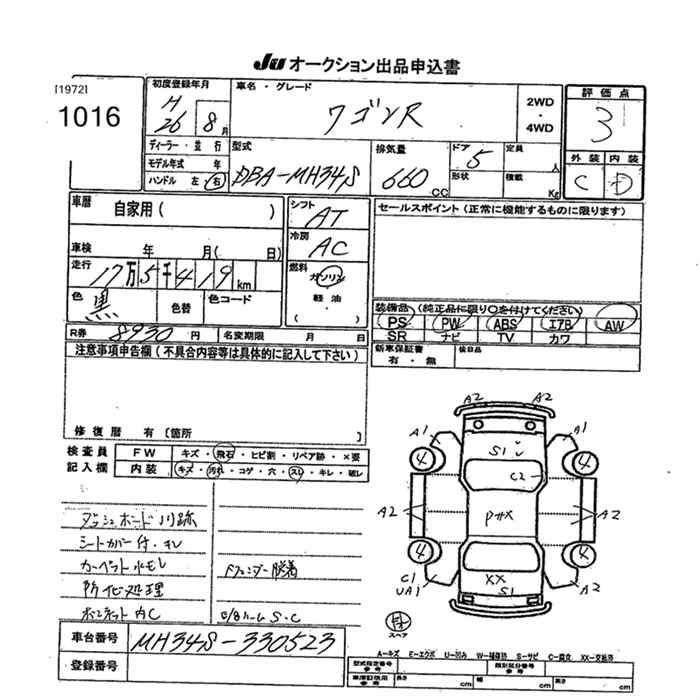 JU オークション出品申込書
[1972]
1016
初度登録年月
H
26 8月
車名・グレード
ワゴンR
2WD
・
4WD
評価点
3
ディーラー・並行
モデル年式 年
ハンドル 左・右
型式
DBA-MH34S
排気量
660 CC
ドア 5
形状
定員 人
積載 Kg
外装 内装
C D
車歴 自家用( )
車検 年 月( 日)
走行 17万5千419km
色 黒 色替 色コード
シフト
AT
冷房
AC
燃料
ガソリン
軽油
・( )
セールスポイント(正常に機能するものに限ります)
装備品 (純正品に限り○を付けてください)
PS PW ABS エアB AW
SR ナビ TV カワ
新車保証書 有・無 後日品
R券 8930円 名変期限 月 日
注意事項申告欄(不具合内容等は具体的に記入して下さい)
修復歴 有[箇所
検査員 FW キズ・飛石・ヒビ割・リペア跡・×要
記入欄 内装 キズ・汚れ・コゲ・穴・スレ・キレ・破レ
ダッシュボード ノリ跡
シートカバー付・キレ
カーペット水モレ
Fフェンダー脱着
ボンネット内C
A2 A2
A1 A1
S1
4 4
C2
A2 P#X A2
4 4
C1
UA1
XX
S1
A2
スペア
A-キズ E-エクボ U-凹み W-補修跡 S-サビ C-腐食 XX-交換済
車台番号 MH34S-330523
登録番号
型式指定番号 参考
類別区分番号 参考
車庫証明用 参考 長さ cm 幅 cm 高さ cm